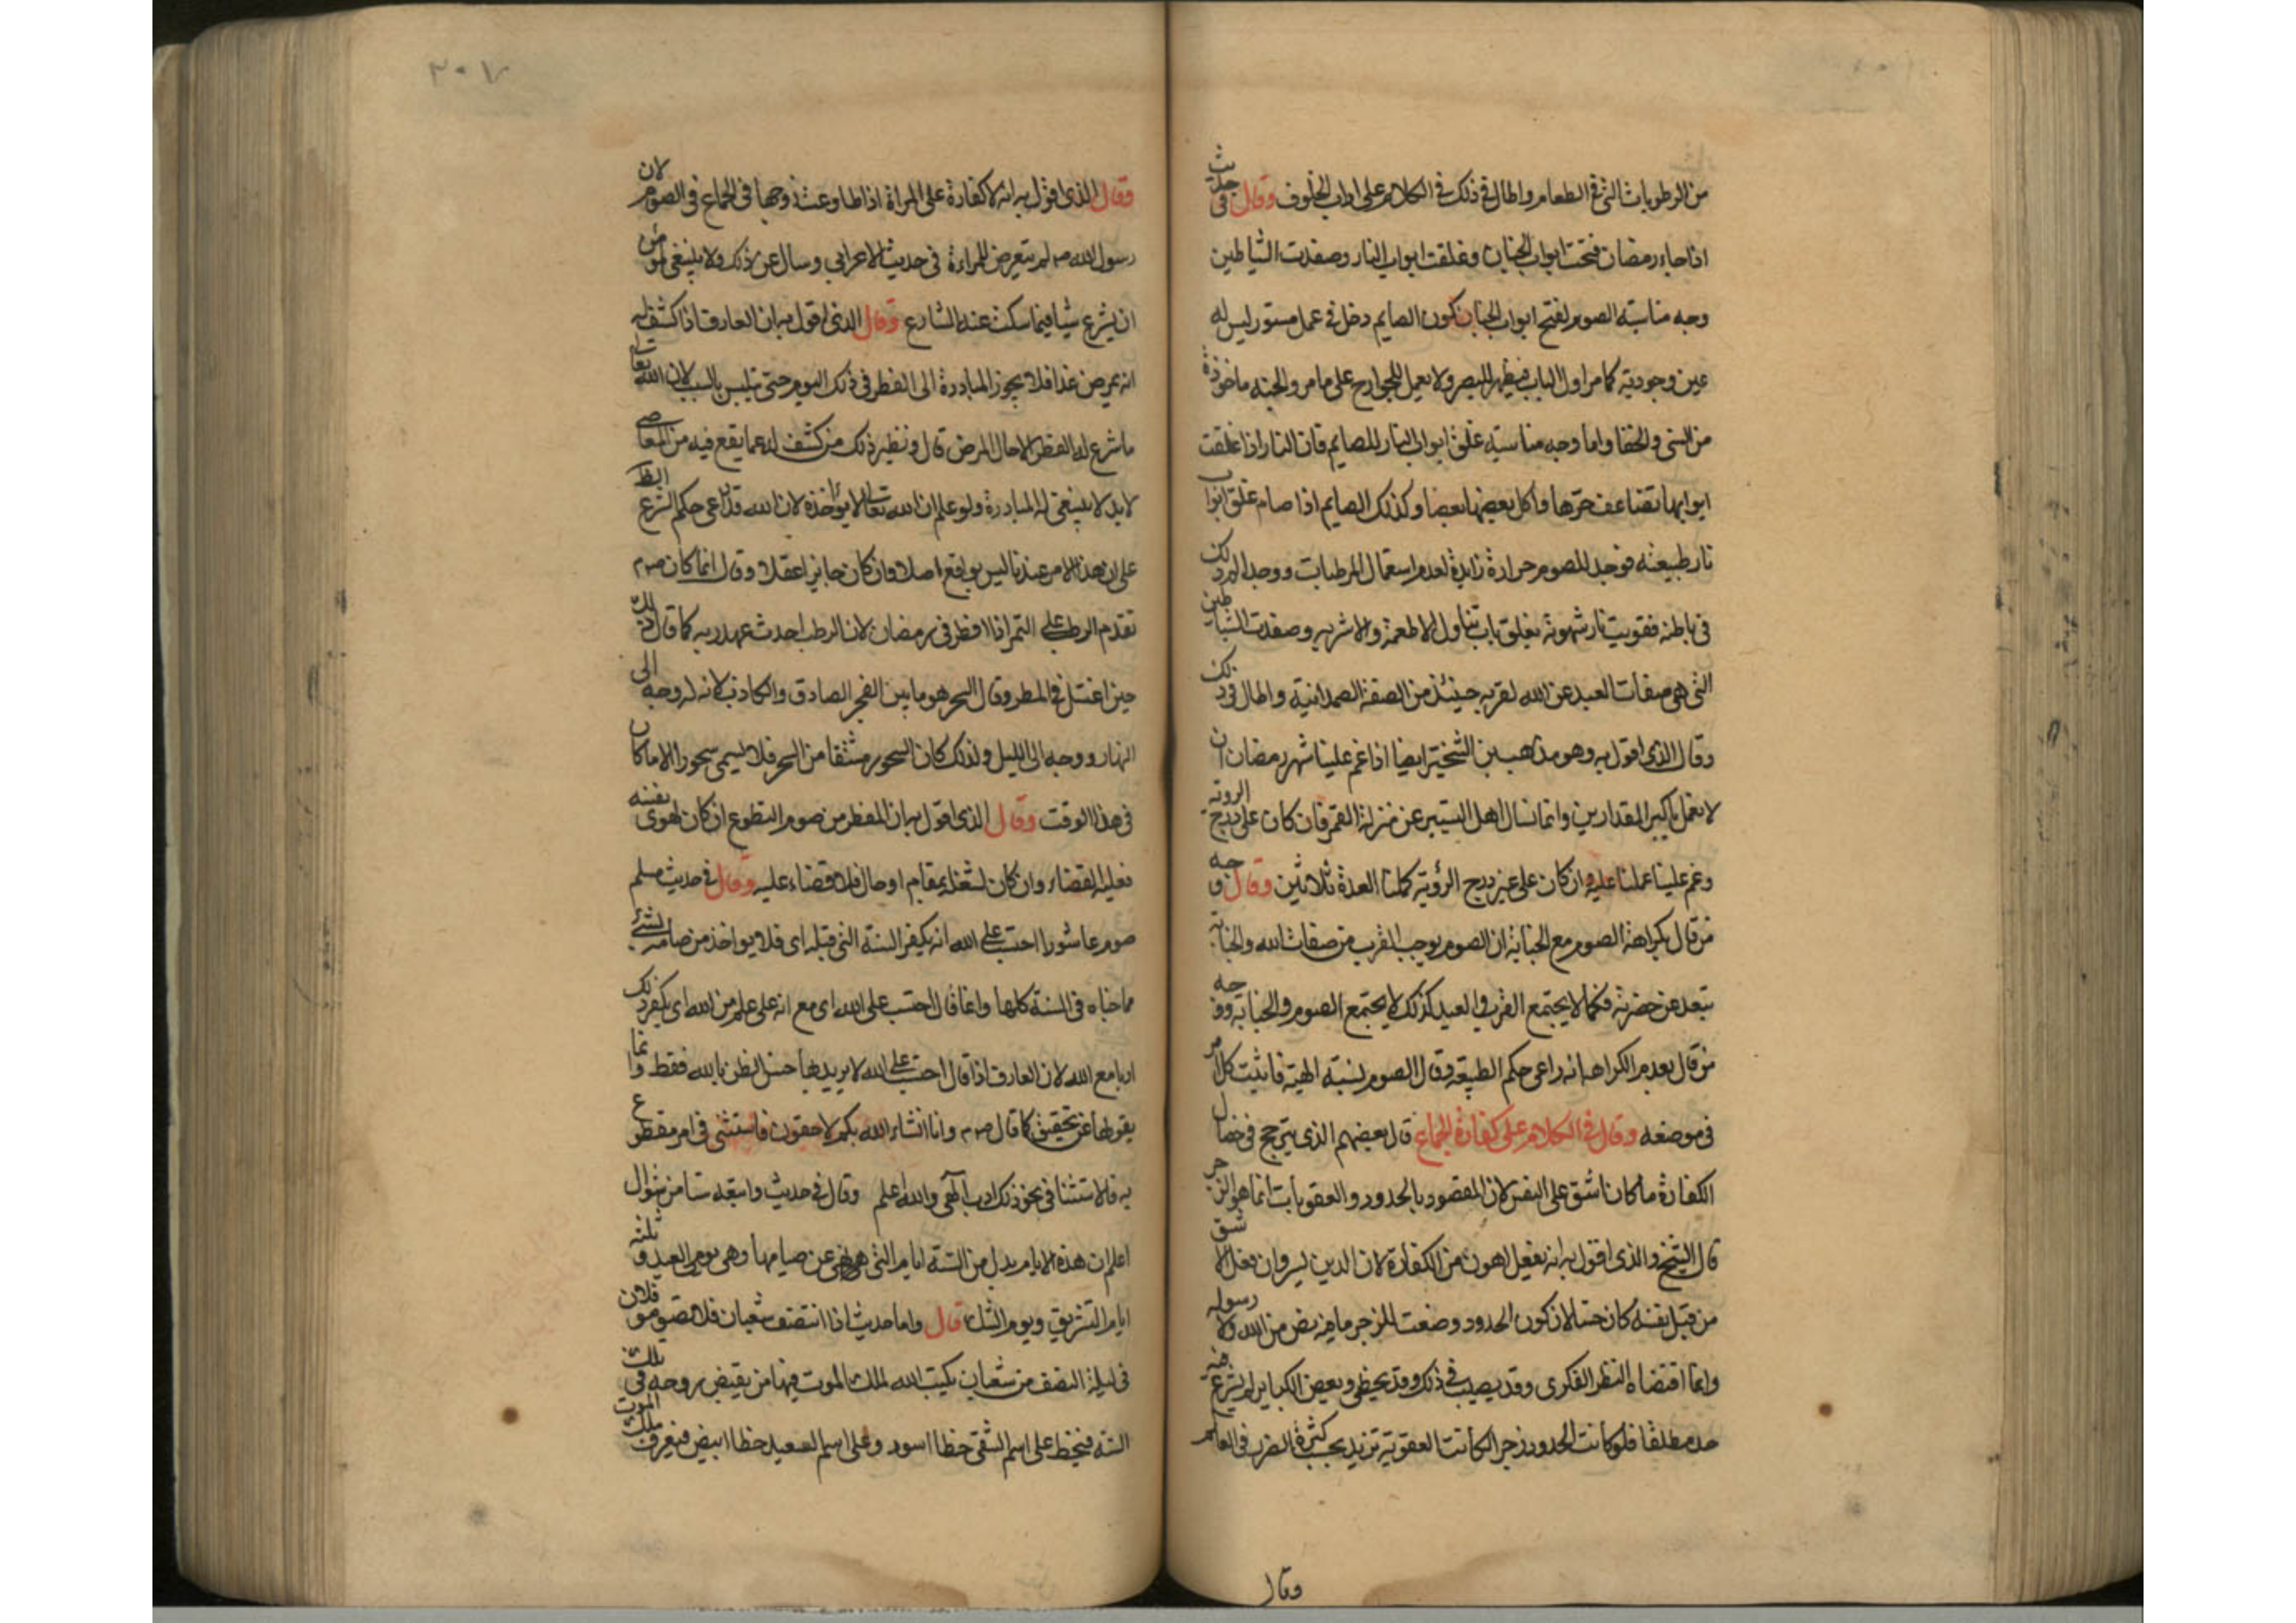 من الرطوبات التي في الطعام واطال في ذلك في الكلام على اداب الخلوف وقال في حديث
اذا جاء رمضان فتحت ابواب الجنان وغلقت ابواب النار وصفدت الشياطين
وجه مناسبة الصوم لفتح ابواب الجنان كون الصايم دخل في عمل مستور ليس له
عين وجودية كما مر اول الباب فيظهر للبصر ولا يعمل للجوارح على ما مر والجنه ماخوذة
من الستر والخفا واما وجه مناسبته غلق ابواب النار للصايم فان النار اذا غلقت
ابوابها تضاعف حرها واكل بعضها بعضا وكذلك الصايم اذا صام غلق ابواب
نار طبيعته فوجد للصوم حرارة زايدة لعدم استعمال المرطبات ووجد الم ذلك
في باطنه فقويت نار شهوته بغلق باب تناول الاطعمة والاشربه وصفدت الشياطين
التي هي صفات العبد عن الله لقربه حينئذ من الصفة الصمدانية واطال في ذلك
وقال الذي اقول به وهو مذهب بن الشخير ايضا اذا غم علينا شهر رمضان ان
لا نعمل باكبر المقدارين وانما نسال اهل التسيير عن منزلة القمر فان كان على درج الروية
وغم علينا عملنا عليه وان كان على غير درج الرؤية كملنا العدة ثلاثين وقال وجه
من قال بكراهة الصوم مع الجنابة ان الصوم يوجب القرب من صفات الله والجنابة
تبعد عن حضرته فكما لا يجتمع القرب والبعد كذلك لا يجتمع الصوم والجنابة ووجه
من قال بعدم الكراهه انه راعى حكم الطبيعة وقال الصوم نسبة الهية فاثبت كل امر
في موضعه وقال في الكلام على كفارة الجماع قال بعضهم الذي يترجح في خصال
الكفارة ما كان اشق على النفس لان المقصود بالحدود والعقوبات انما هو الزجر
قال الشيخ والذي اقول به انه يفعل اهون من الكفارة لان الدين يسر وان فعل الاشق
من قبل نفسه كان حسنا لان كون الحدود وضعت للزجر ما فيه نص من الله ولا رسوله
وانما اقتضاه النظر الفكري وقد يصيب في ذلك وقد يخطي وبعض الكباير لم يشرع فيه
حد مطلقا فلو كانت الحدود زجرا لكانت العقوبة تزيد بحسب كثرة الضرر في العالم
وقال
٣٠٧
وقال الذي اقول به انه لا كفارة على المراة اذا طاوعت زوجها في الجماع في الصوم لان
رسول الله صم لم يتعرض للمراءة في حديث الاعرابي وسال عن ذلك ولا ينبغي لمومن
ان يشرع شيا فيما سكت عنه الشارع وقال الذي اقول به ان العارف اذا كشف له
انه يمرض غدا فلا يجوز المبادرة الى الفطر في ذلك اليوم حتى يتلبس بالسبب لان الله تعالى
ما شرع له الفطر الا حال المرض قال ونظير ذلك من كشف له عما يقع فيه من المعاصي
لابد لا ينبغي له المبادرة ولو علم ان الله تعالى لا يواخذه لان الله قد راعى حكم الشرع الظ
على ان هذا الامر عندنا ليس بواقع اصلا وان كان جايزا عقلا وقال انما كان صم
تقدم الرطب على التمر اذا افطر في رمضان لان الرطب احدث عهد ربه كما قال ذلك
حين اغتسل في المطر وقال السحر هو ما بين الفجر الصادق والكاذب لانه له وجه الى
النهار ووجه الى الليل ولذلك كان السحور مشتقا من السحر فلا يسمى سحورا الا ما كان
في هذا الوقت وقال الذي اقول به ان المفطر من صوم التطوع ان كان لهوى نفسه
فعليه القضاء وان كان لشغله بمقام او حال فلا قضاء عليه وقال في حديث مسلم
صوم عاشورا احتسب على الله انه يكفر السنة التي قبله اى فلا يواخذ من صامه بشئ
مما جناه في السنة كلها وانما قال احتسب على الله اى مع انه على علم من الله اى يكفر ذلك
ادبا مع الله لان العارف اذا قال احتسب على الله لا يريد بها حسن الظن بالله فقط وانما
يقولها عن تحقيق كما قال صم وانا انشاء الله بكم لاحقون فاستثنى في امر مقطوع
به فالاستثنا في نحو ذلك ادب الهي والله اعلم وقال في حديث واتبعه ستا من شوال
اعلم ان هذه الايام بدل من الستة ايام التي نهى عن صيامها وهي يومي العيد وثلثه
ايام التشريق ويوم الشك قال واما حديث اذا انتصف شعبان فلا تصوموا فلان
في ليلة النصف من شعبان يكتب الله لملك الموت فيها من يقبض روحه في تلك
السنه فيخط على اسم الشقي خطا اسود وعلى اسم السعيد خطا ابيض فيعرف ملك الموت